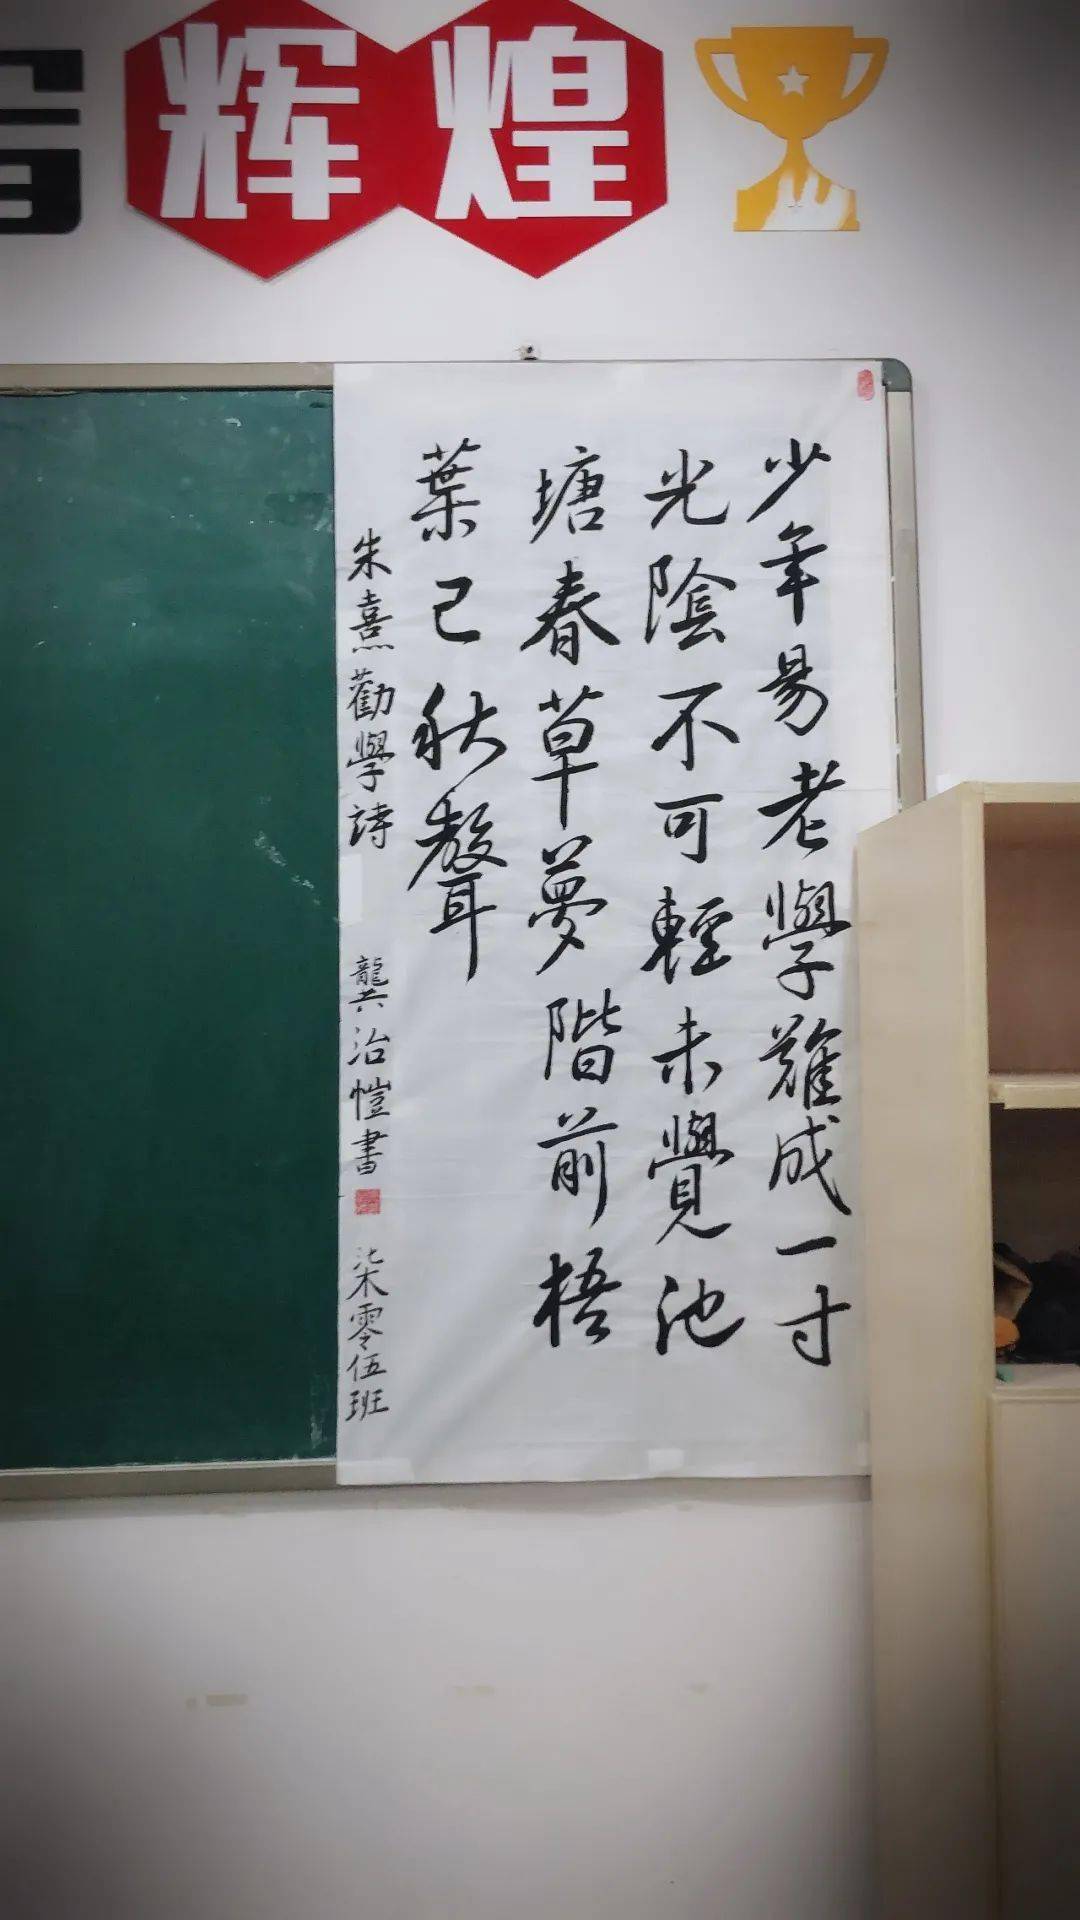 辉煌
少年易老學難成一寸
光陰不可輕未覺池
塘春草夢階前梧
葉已秋聲
朱熹勸學詩 龔治愷書 柒零伍班